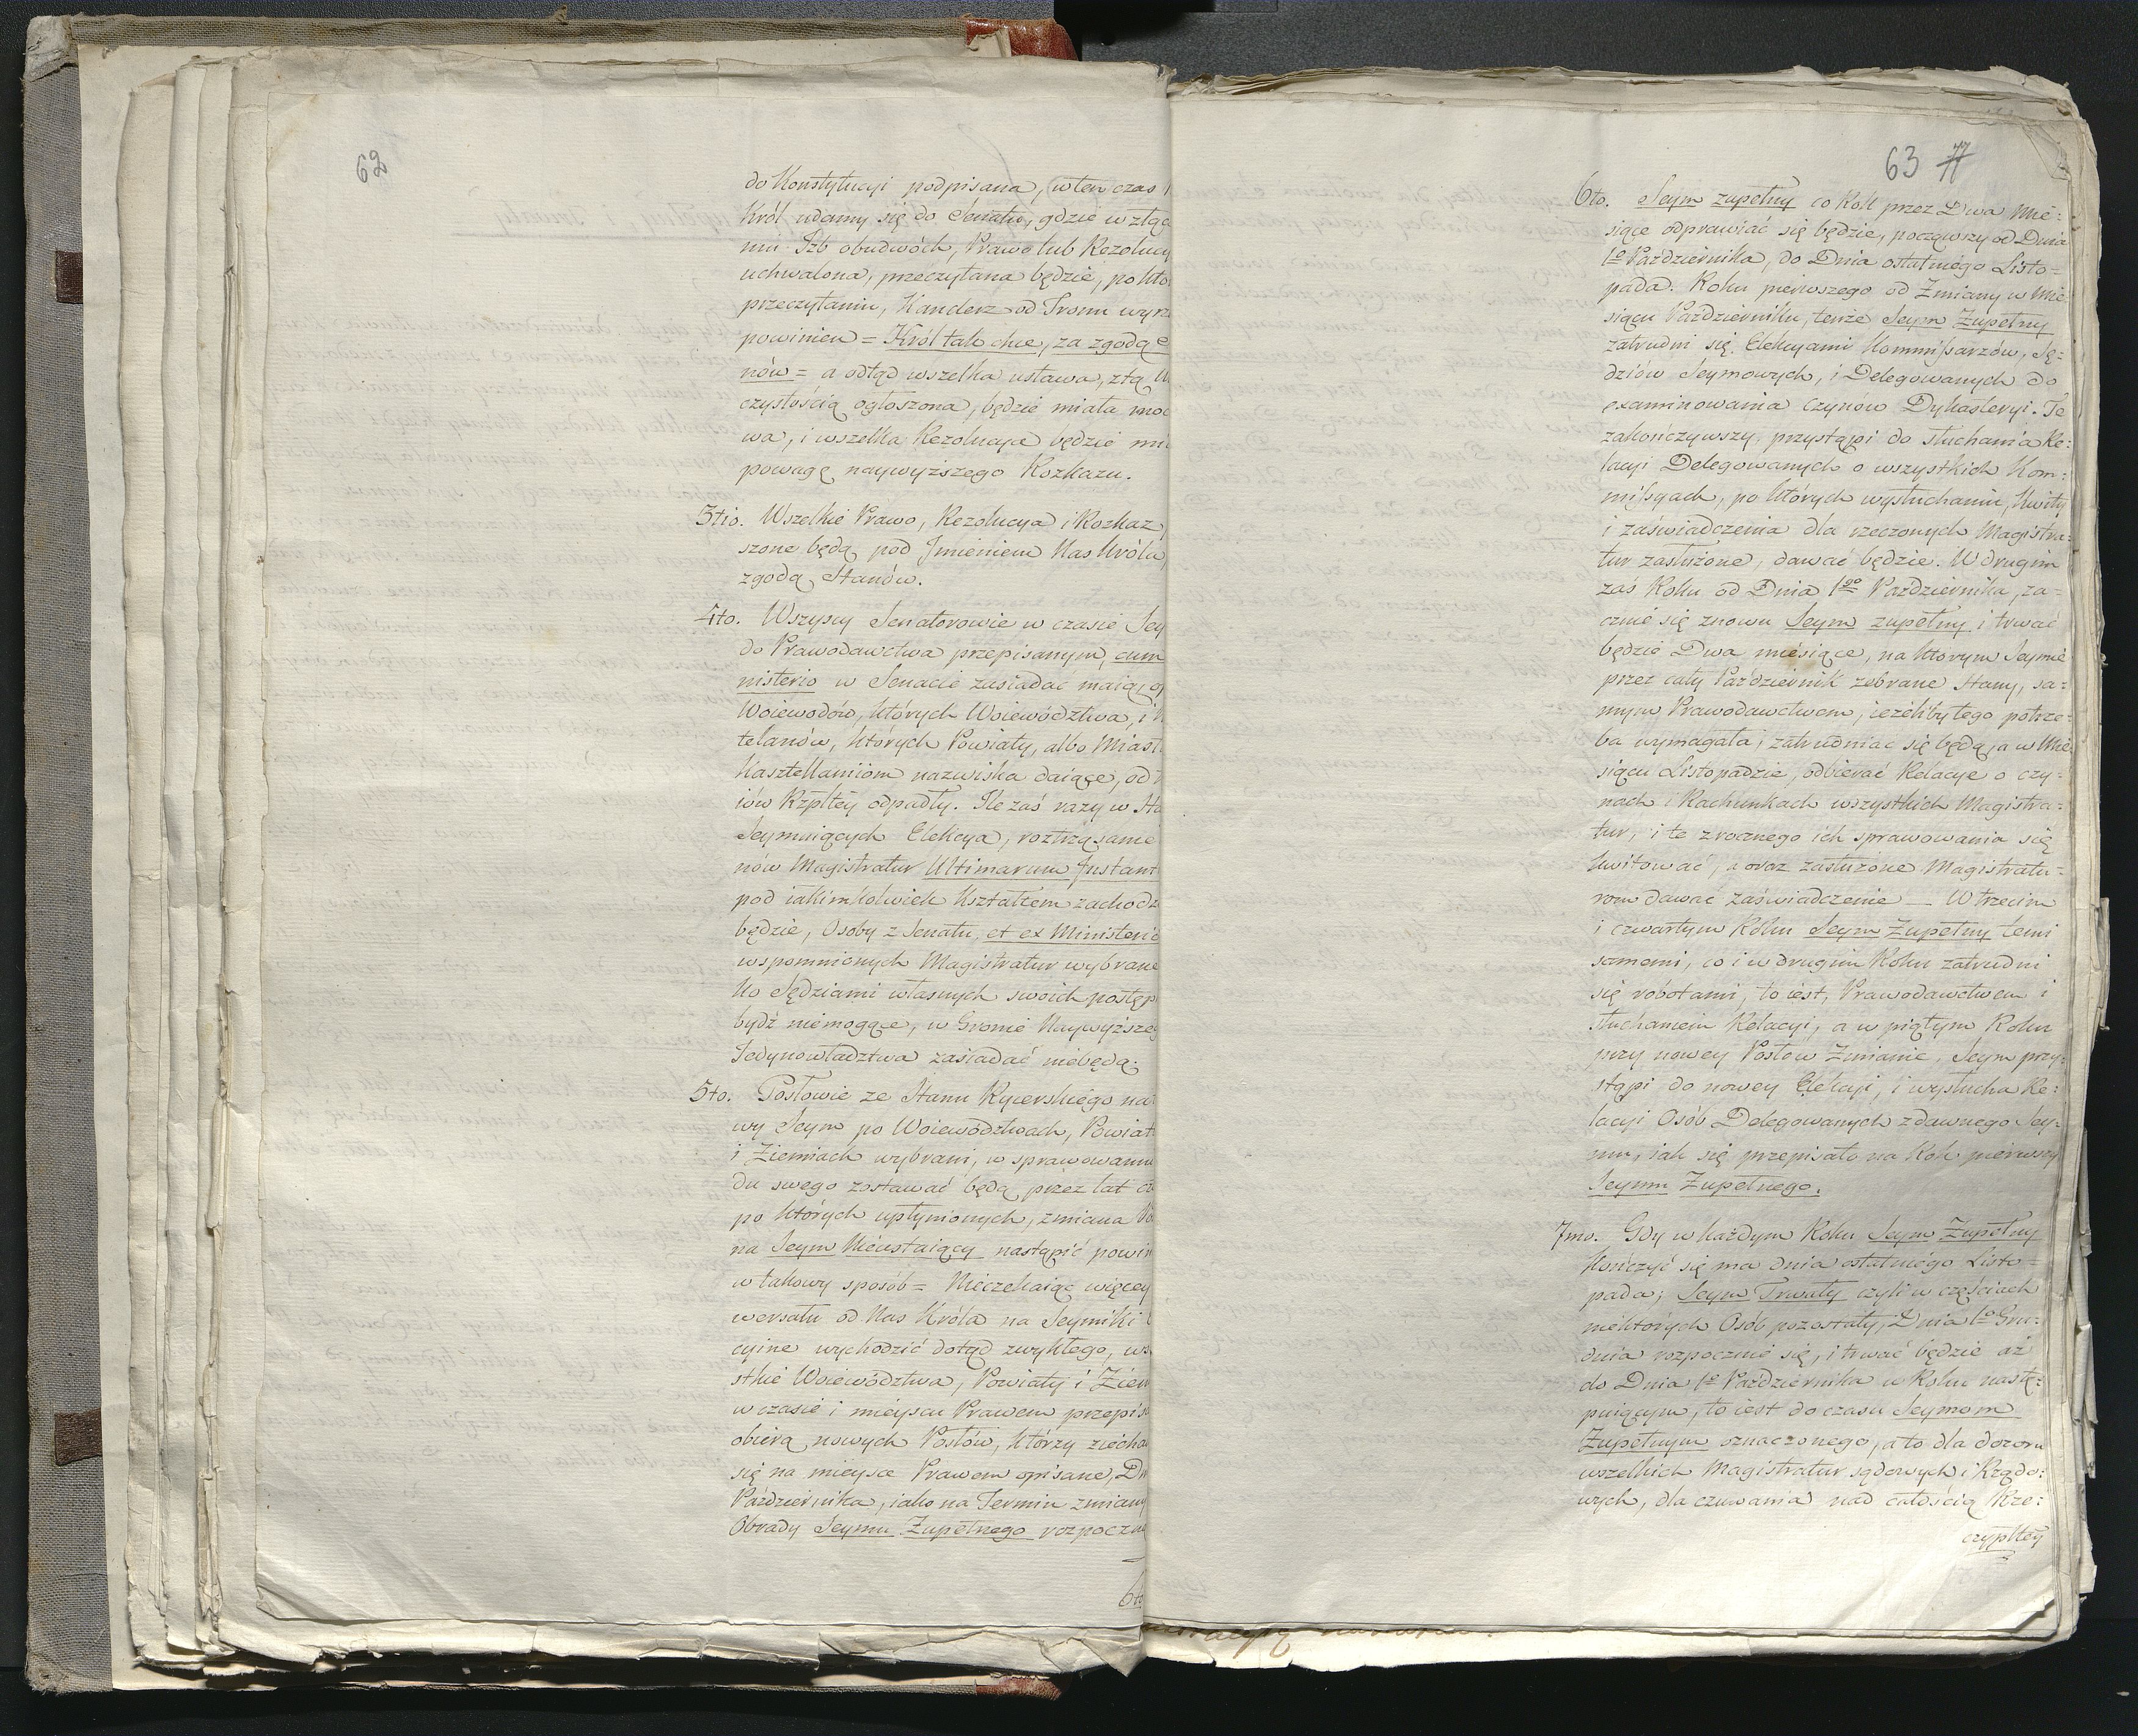 62
do Konstytucyi podpisana, w ten czas
Król udamy się do Senatu, gdzie w złą
mu Izb obudwóch, Prawo lub Rezolucy
uchwalona, przeczytana będzie, po któ
przeczytaniu, Kanclerz od Tronu wyrz
powinien = Król tak chce, za zgodą
nów = a odtąd wszelka ustawa, z tą U
czystością ogłoszona, będzie miała moc
wa, i wszelka Rezolucya będzie mi
powagę naywyższego Rozkazu.
3tio. Wszelkie Prawo, Rezolucya i Rozkaz
szone będą pod Imieniem Nas Króla,
zgodą Stanów.
4to. Wszyscy Senatorowie w czasie Sey
do Prawodawctwa przepisanym, cum
nisterio w Senacie zasiadać maią,
Woiewodów, których Woiewództwa, i
telanów, których Powiaty, albo Miast
Kasztellaniiom nazwiska daiące, od
iów Rzpltey odpadły. Ile zaś razy w
Seymuiących Elekcya, roztrząsanie
nów Magistratur Ultimarum Instant
pod iakimkolwiek Kształtem zachodz
będzie, Osoby z Senatu, et ex Ministerio
wspomnionych Magistratur wybrane
ko Sędziami własnych swoich postęp
bydź niemogące, w Gronie Naywyższeg
Jedynowładztwa zasiadać niebędą.
5to. Posłowie ze Stanu Rycerskiego na
wy Seym po Woiewództwach, Powiat
i Ziemiach wybrani, w sprawowaniu
du swego zostawać będą przez lat
po których upłynionych, zmiana
na Seym Nieustaiący nastąpić powin
w takowy sposób = Nieczekaiąc więcey
wersału od Nas Króla na Seymiki
cyine wychodzić dotąd zwykłego, ws
stkie Woiewództwa, Powiaty i Ziem
w czasie i mieyscu Prawem przepis
obiorą nowych Posłów, którzy ziecha
się na mieysce Prawem opisane, Dn
Października, iako na Termin zmiany
Obrady Seymu Zupełnego rozpoczn
6to
63 77
6to. Seym zupełny co Rok przez Dwa Mie=
siące odprawiać się będzie, począwszy od Dnia
1º Października, do Dnia ostatniego Listo=
pada. Roku pierwszego od Zmiany w Mie=
siącu Październiku, tenże Seym Zupełny
zatrudni się Elekcyami Kommissarzów, Sę=
dziów Seymowych, i Delegowanych do
examinowania czynów Dykasteryi. Te
zakończywszy, przystąpi do słuchania Re=
lacyi Delegowanych o wszystkich Kom=
missyach, po których wysłuchaniu, Kwity
i zaświadczenia dla rzeczonych Magistra=
tur zasłużone, dawać będzie. W drugim
zaś Roku od Dnia 1go Października, za=
cznie się znowu Seym zupełny i trwać
będzie Dwa miesiące, na którym Seymie
przez cały Październik zebrane Stany, sa=
mym Prawodawctwem, ieżeliby tego potrze=
ba wymagała, zatrudniać się będą, a w Mie
siącu Listopadzie, odbierać Relacye o czy=
nach i Rachunkach wszystkich Magistra=
tur, i te z rocznego ich sprawowania się
kwitować, a oraz zasłużone Magistratu=
rom dawać zaświadczenie — W trzecim
i czwartym Roku Seym Zupełny temi
samemi, co i w drugim Roku zatrudni
się robotami, to iest, Prawodawctwem i
słuchaniem Relacyi, a w piątym Roku
przy nowey Posłow Zmianie, Seym przy=
stąpi do nowey Elekcyi, i wysłucha Re=
lacyi Osób Delegowanych z dawnego Sey=
mu, iak się przepisało na Rok pierwszy
Seymu Zupełnego.
7mo. Gdy w każdym Roku Seym Zupełny
kończyć się ma dnia ostatniego Listo=
pada; Seym Trwały czyli w częściach
niektórych Osób pozostały, Dnia 1º Gru=
dnia rozpocznie się, i trwać będzie aż
do Dnia 1º Października w Roku nastę=
puiącym, to iest do czasu Seymom
Zupełnym oznaczonego, a to dla dozoru
wszelkich Magistratur sądowych i Rządo=
wych, dla czuwania nad całością Rze=
czypltey